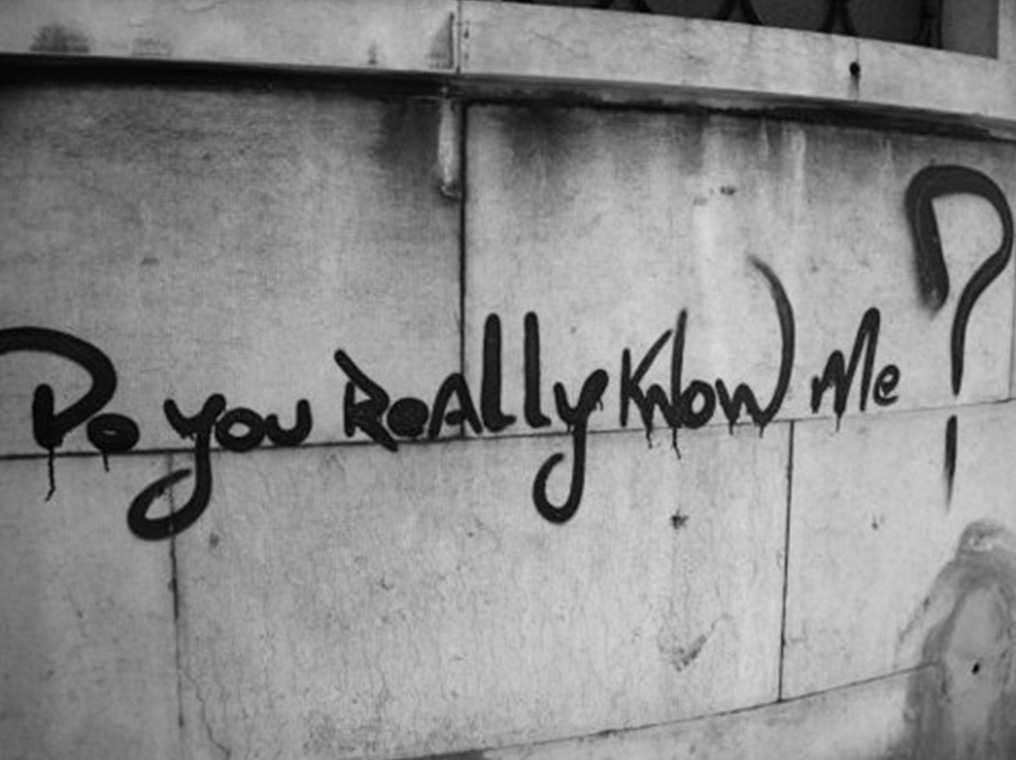 Do you ReAlly Know Me ?